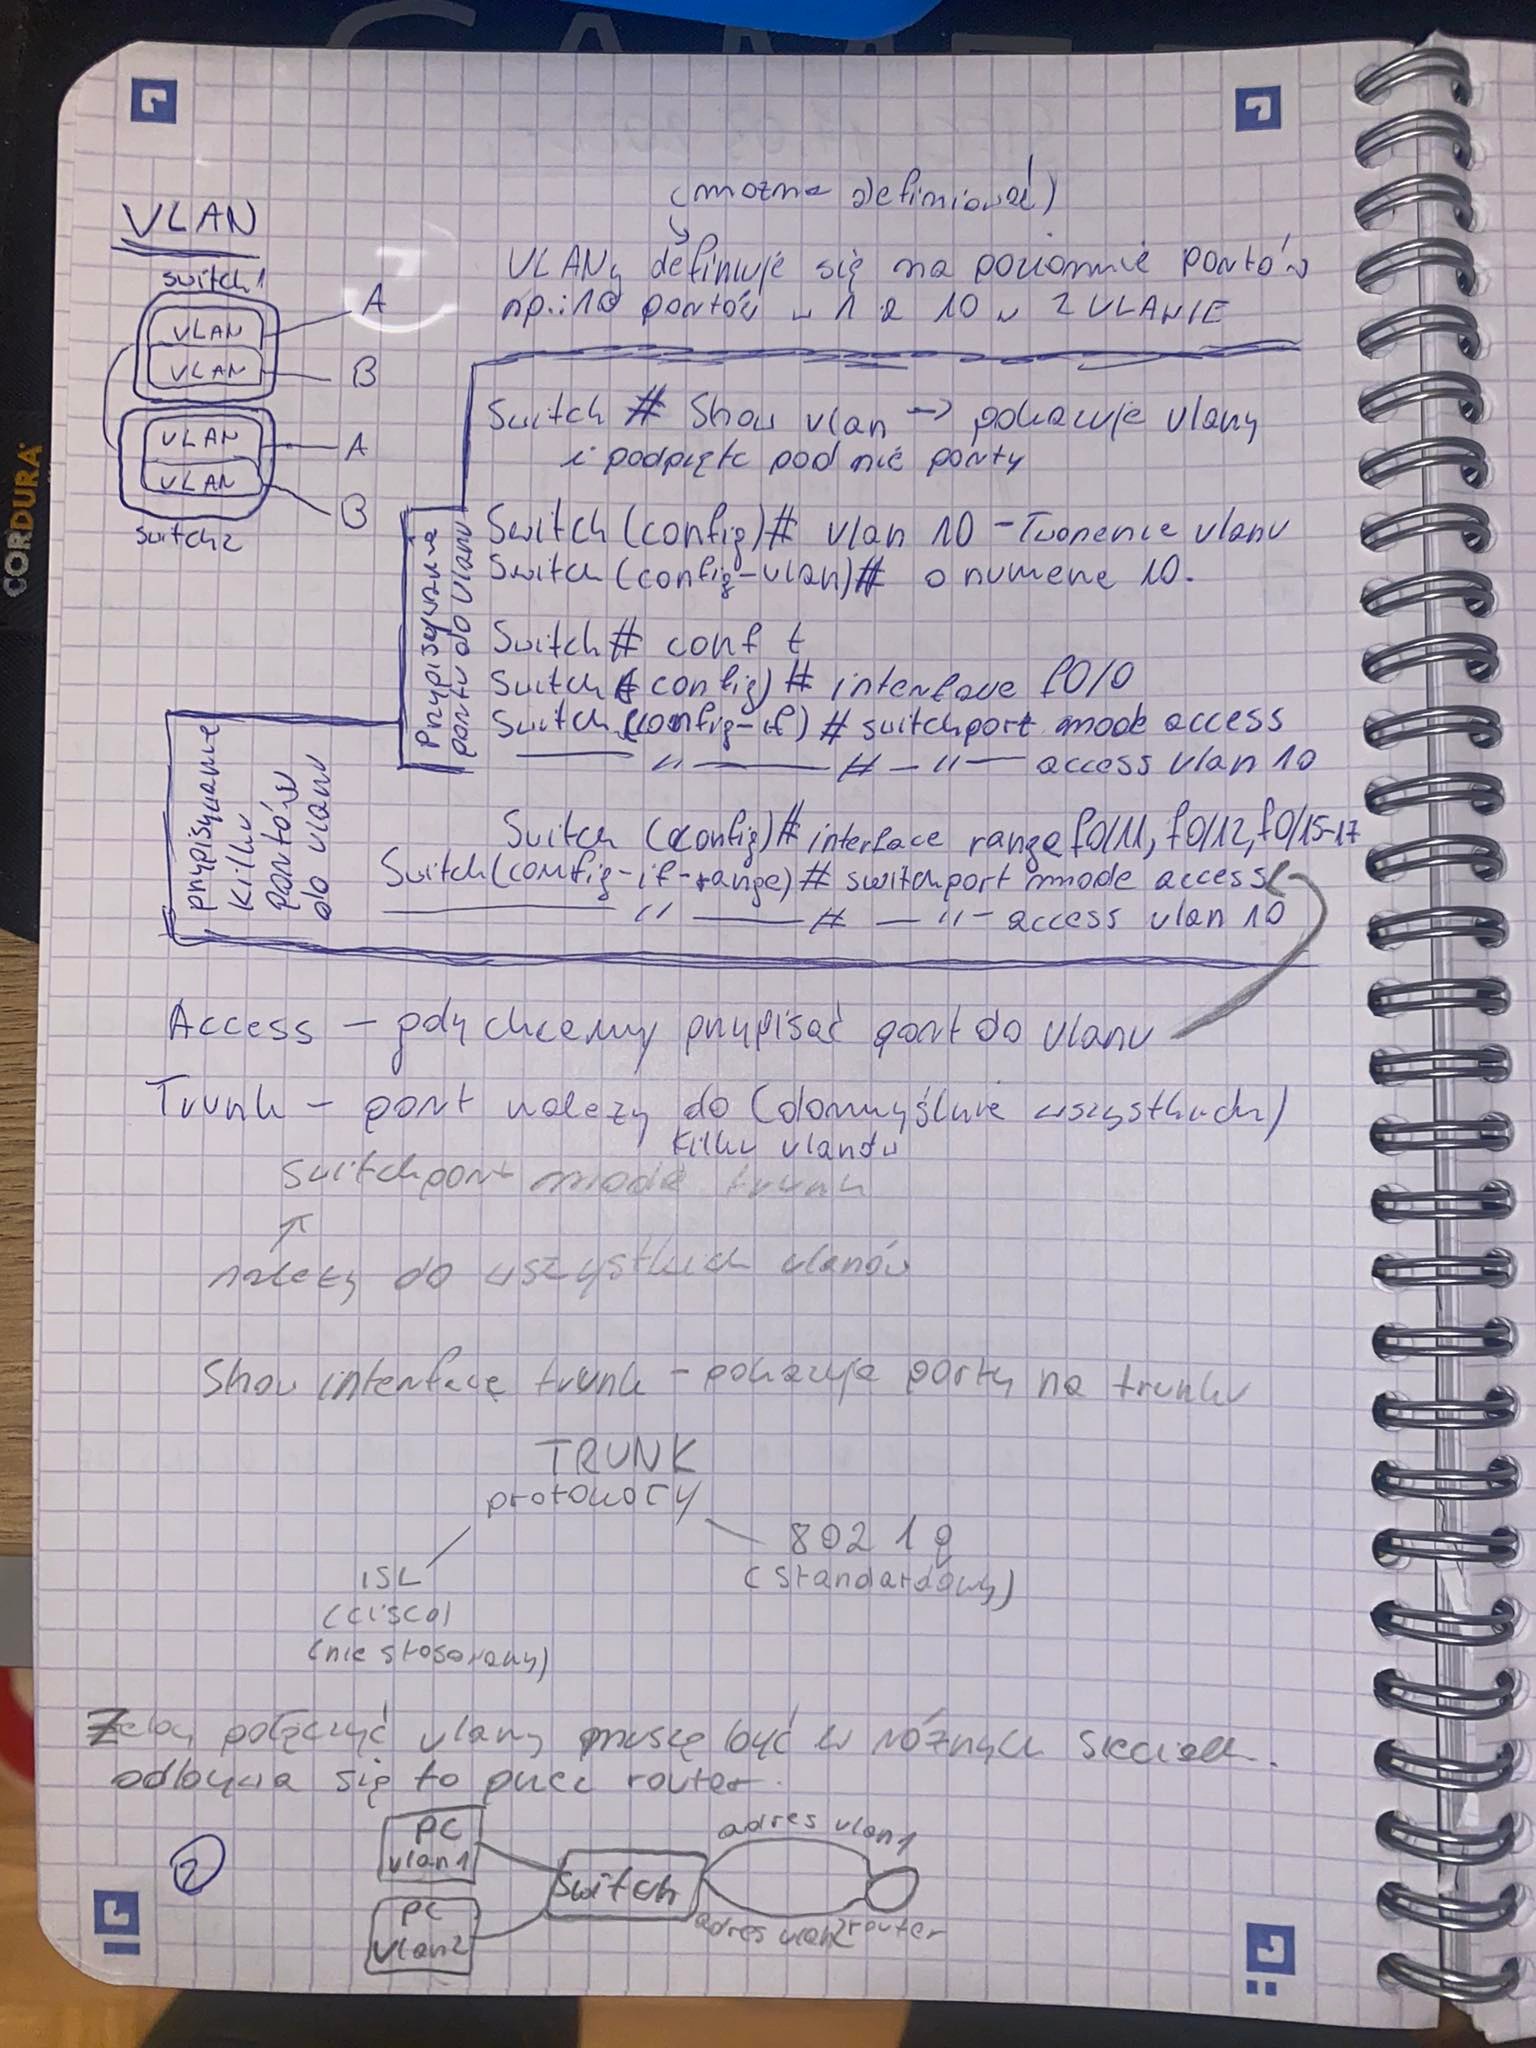 VLAN
switch1
VLAN
VLAN
A
B
VLAN
VLAN
A
B
switch2
(można definiować)
VLANy definiuje się na poziomie portów
np.: 10 portów w 1 a 10 w 2 VLANIE
Switch # Show vlan -> pokazuje vlany
i podpięte pod nie porty
Przypisywanie
portu do vlanu
Switch (config)# vlan 10 - Tworzenie vlanu
Switch (config-vlan)# o numerze 10.
Switch# conf t
Switch (config) # interface f0/0
Switch (config-if) # switchport mode access
〃 # 〃 access vlan 10
przypisywanie
kilku
portów
do vlanu
Switch (config)# interface range f0/11, f0/12, f0/15-17
Switch(config-if-range) # switchport mode access
〃 # 〃 access vlan 10
Access - gdy chcemy przypisać port do vlanu
Trunk - port należy do (domyślnie wszystkich)
kilku vlanów
switchport mode trunk
należy do wszystkich vlanów
Show interface trunk - pokazuje porty na trunku
TRUNK
protokoły
ISL
(cisco)
(nie stosowany)
802 1 q
(standardowy)
Żeby połączyć vlany muszę być w różnych sieciach.
odbywa się to przez router.
2
PC
vlan1
PC
vlan2
switch
adres vlan1
adres vlan2
router
CORDURA